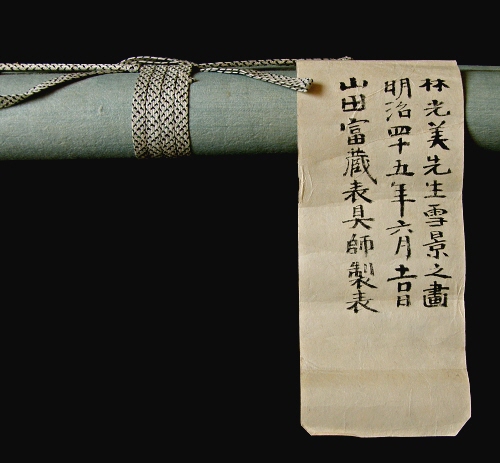 林光美先生雪景之畫
明治四十五年六月吉日
山田富藏表具師製表